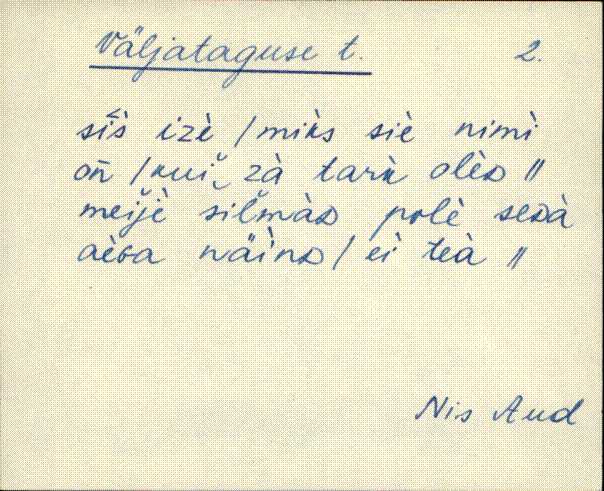 Väljataguse t. 2.
sī̆s izè / mìks siè nimì
on̄ / kui‿zà tarìk olèᴅ //
meijè silmàᴅ polè seᴅà
aèɢa näìnᴅ / eì teà //
Nis Aud